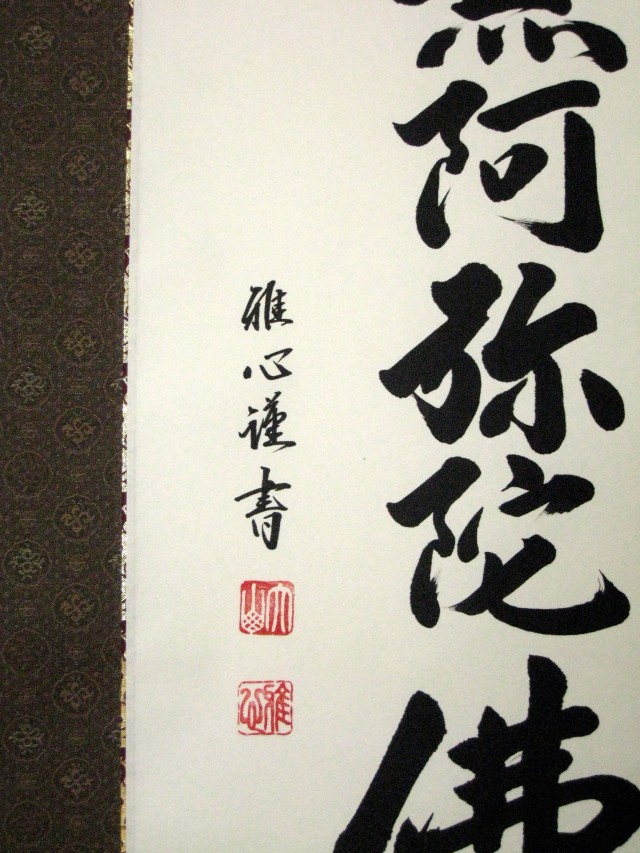 無阿弥陀佛
雅心謹書
雅心